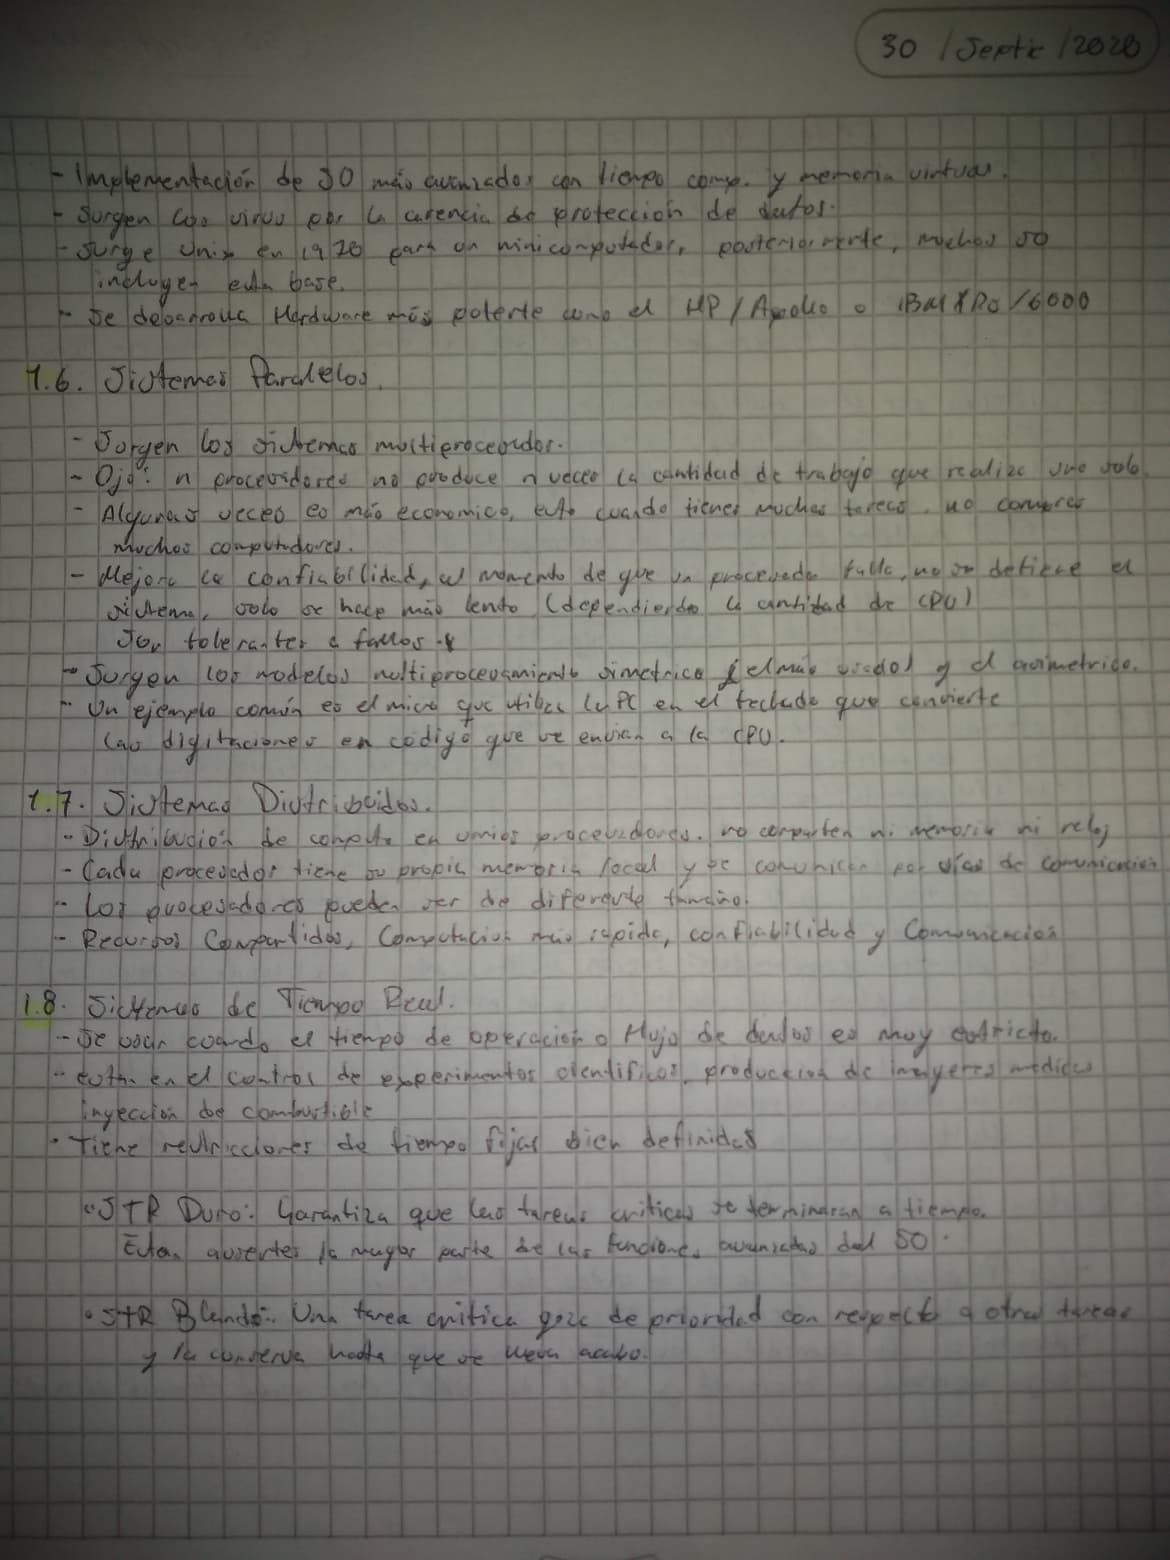 30 / Septie / 2020
- Implementación de SO más avanzados con tiempo comp. y memoria virtual.
- Surgen los virus por la carencia de protección de datos.
- Surge Unix en 1970 para un minicomputador, posteriormente, muchos SO
incluyen esta base.
- Se desarrolla Hardware más potente como el HP / Apollo o IBM XRS/6000
1.6. Sistemas Paralelos.
- Surgen los sistemas multiprocesador.
- Ojo: n procesadores no produce n veces la cantidad de trabajo que realiza uno solo.
- Algunas veces es más economico, esto cuando tienes muchas tareas. no compres
muchos computadores.
- Mejora la confiabilidad, al momento de que un procesador falla, no se detiene el
sistema, solo se hace más lento (dependiendo la cantidad de CPU)
Son tolerantes a fallos.
- Surgen los modelos multiprocesamiento simetrico (el más usado) y el asimetrico.
- Un ejemplo común es el micro que utiliza la PC en el teclado que convierte
las digitaciones en codigo que se envian a la CPU.
1.7. Sistemas Distribuidos.
- Distribución de computo en varios procesadores. no comparten ni memoria ni reloj
- Cada procesador tiene su propia memoria local y se comunican por vías de comunicación
- Los procesadores pueden ser de diferente tamaño.
- Recursos Compartidos, Computacion más rapida, confiabilidad y Comunicación
1.8. Sistemas de Tiempo Real.
- Se usan cuando el tiempo de operación o flujo de datos es muy estricto.
- estan en el control de experimentos cientificos, producción de imagenes medicas
inyección de combustible
- Tiene restricciones de tiempo fijas bien definidas
• STR Duro: Garantiza que las tareas criticas se terminaran a tiempo.
Estan ausentes la mayor parte de las funciones avanzadas del SO.
• STR Blando: Una tarea critica goza de prioridad con respecto a otras tareas
y la conserva hasta que se lleva acabo.